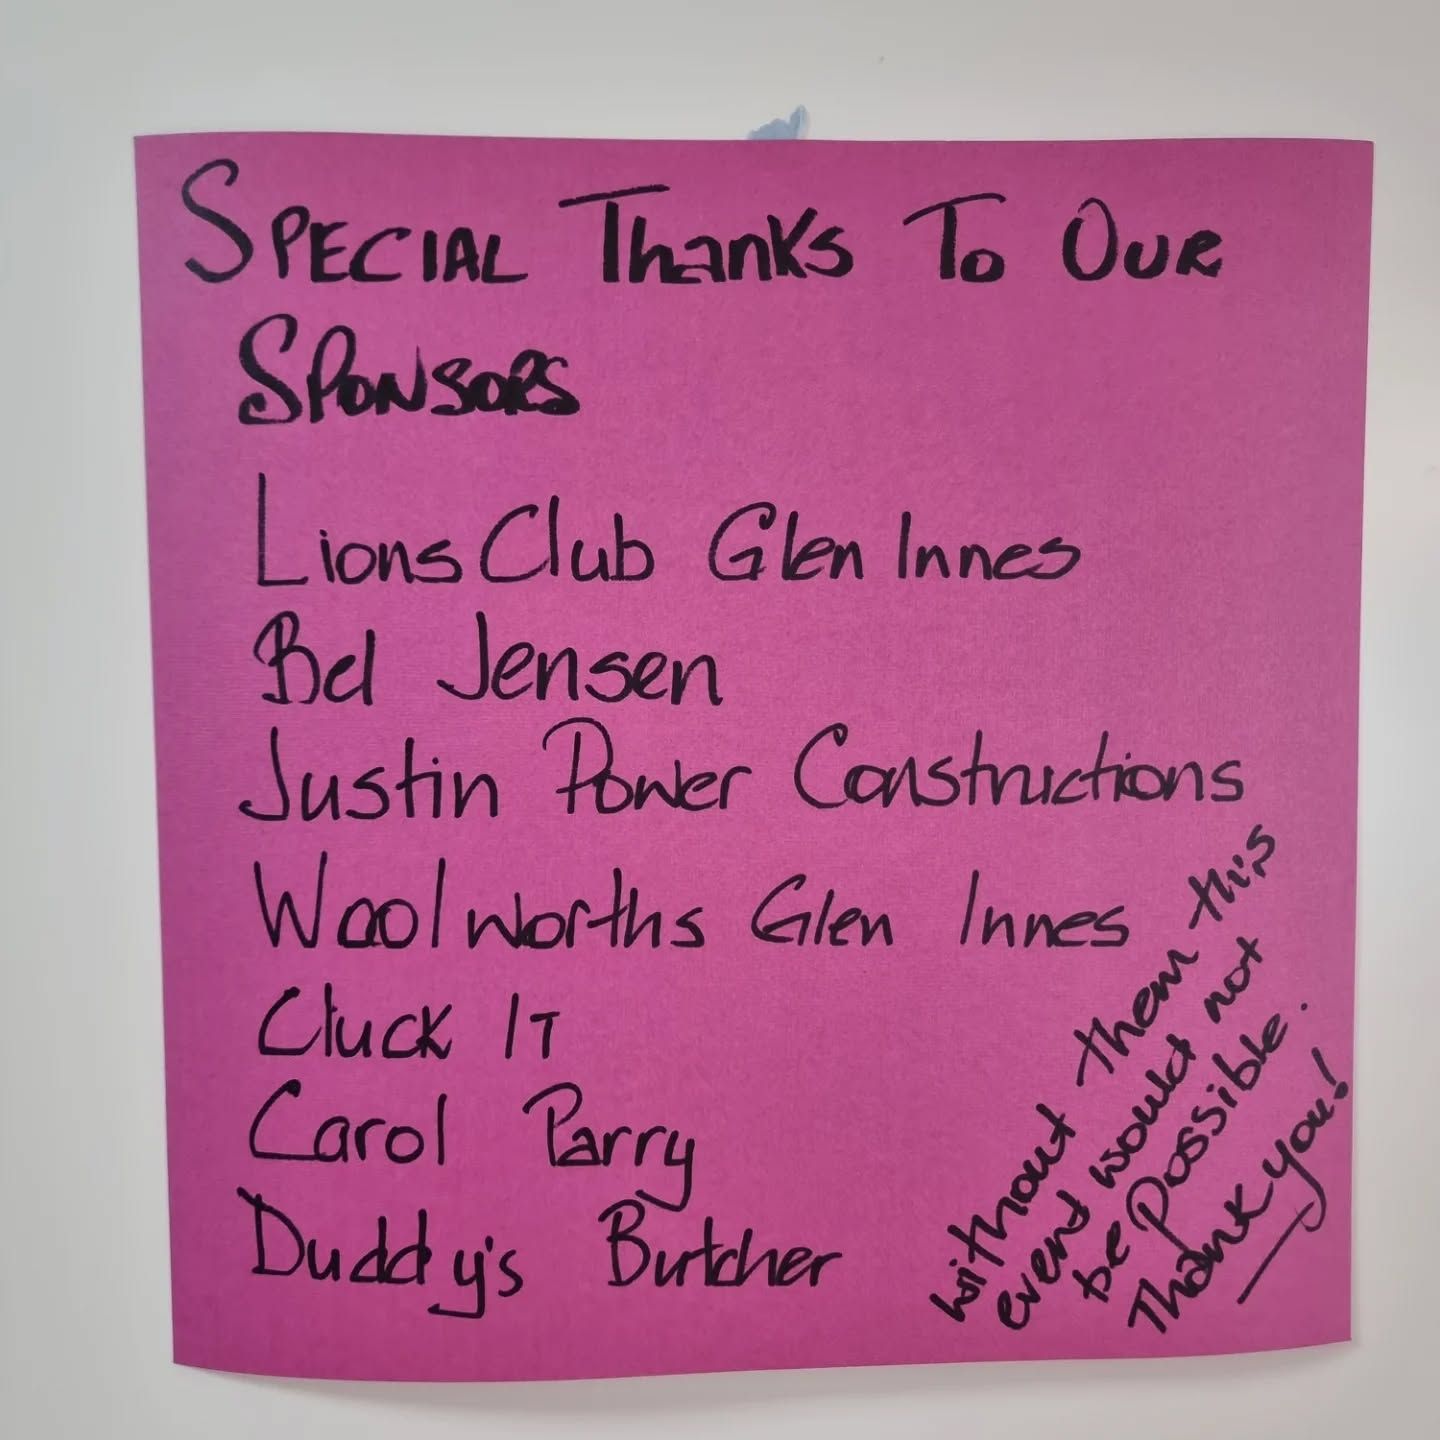 SPECIAL ThanKs To OUR
SPONSORS
Lions Club Glen Innes
Bel Jensen
Justin Power Constructions
Woolworths Glen Innes
Cluck IT
Carol Parry
Duddy's Butcher
without them this
event would not
be Possible.
Thank you!